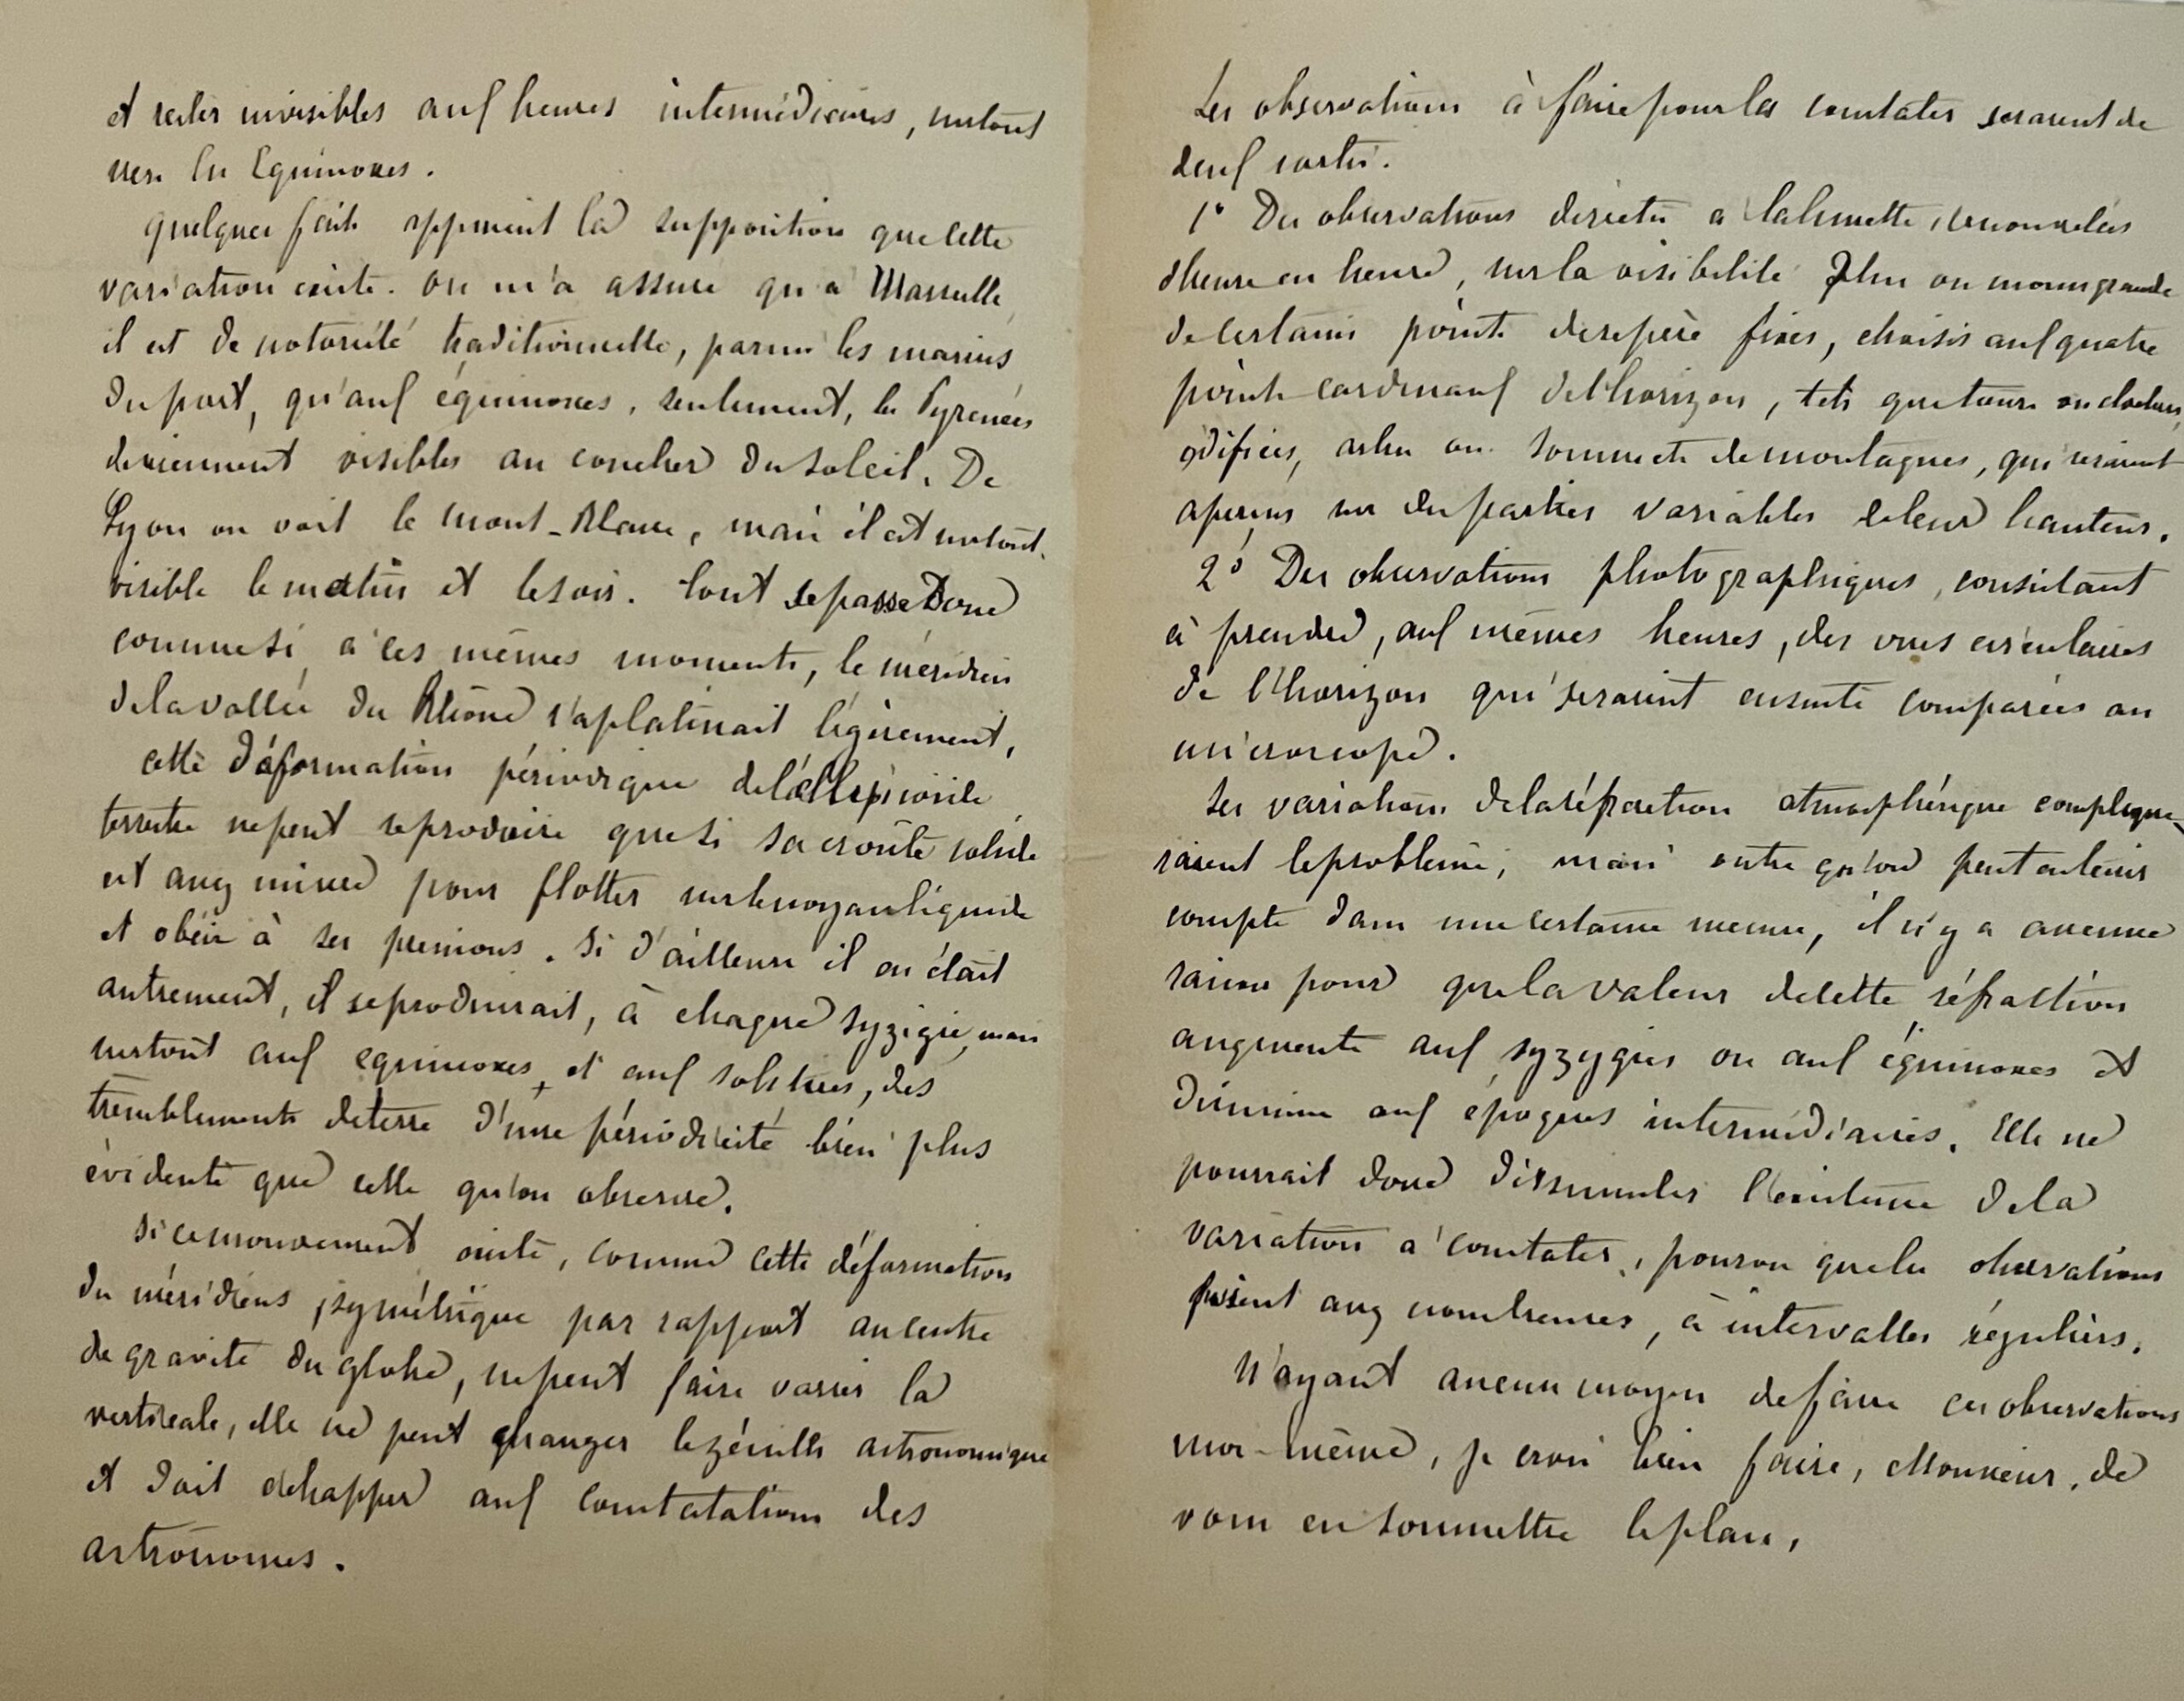 et rester invisibles aux heures intermédiaires, surtout
vers les Equinoxes.
quelques faits appuient la supposition que cette
variation existe. on m'a assuré qu'à Marseille
il est de notoriété traditionnelle, parmi les marins
du port, qu'aux équinoxes, seulement, les Pyrenées
deviennent visibles au coucher du soleil. De
Lyon on voit le mont-Blanc, mais il est surtout
visible le matin et le soir. tout se passe Donc
comme si à ces mêmes moments, le méridien
de la vallée du Rhône s'aplatissait légèrement,
cette déformation périodique de l'éllepsoïde
terrestre ne peut se produire que si sa croûte solide
est assez mince pour flotter sur le noyau liquide
et obéir à ses pressions. Si d'ailleurs il en était
autrement, il se produirait, à chaque syzigie, mais
surtout aux equinoxes, et aux solstices, des
tremblements de terre d'une périodicité bien plus
évidente que celle qu'on observe.
Si ce mouvement existe, comme cette déformation
du méridiens, symétrique par rapport au centre
de gravité du globe, ne peut faire varier la
verticale, elle ne peut changer le zénith astronomique
et doit échapper aux constatations des
astronomes.
Les observations à faire pour la constater seraient de
deux sortes.
1° Des observations directes à la lunette, renouvelées
d'heure en heure, sur la visibilité plus ou moins grande
de certains points de repère fixes, choisis aux quatre
points cardinaux de l'horizon, tels que tours ou clochers,
édifices, arbres ou sommets de montagnes, qui seraient
aperçus sur des parties variables de leur hauteur.
2° Des observations photographiques, consistant
à prendre, aux mêmes heures, des vues circulaires
de l'horizon qui seraient ensuite comparées au
microscope.
Les variations de la réfraction atmosphérique complique-
raient le problème, mais outre qu'on peut en tenir
compte dans une certaine mesure, il n'y a aucune
raison pour que la valeur de cette réfraction
augmente aux syzygies ou aux équinoxes et
diminue aux époques intermédiaires. Elle ne
pourrait donc dissimuler l'existence de la
variation à constater, pourvu que les observations
fussent assez nombreuses, à intervalles réguliers.
N'ayant aucun moyen de faire ces observations
moi-même, je crois bien faire, Monsieur, de
vous en soumettre le plan,